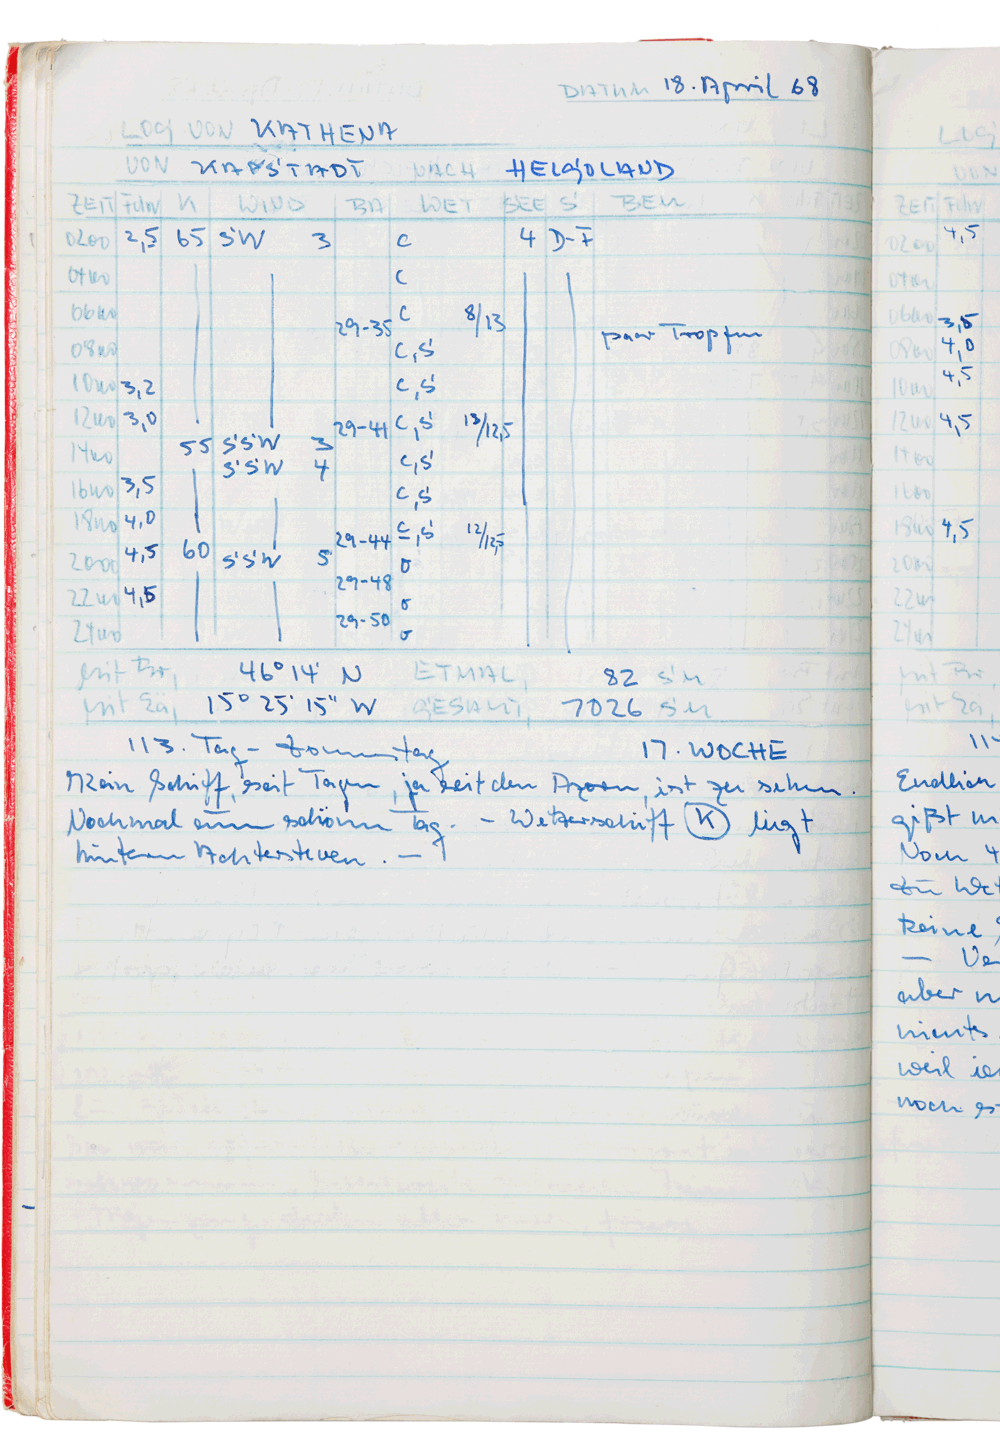 DATUM 18. April 68
LOG VON KATHENA
VON KAPSTADT NACH HELGOLAND
ZEIT FDW K WIND BA WET SEE S BEM
0200 2,5 65 SW 3 C 4 D-F
0400 C
0600 29-35 C 8/13
0800 C,S paar Tropfen
1000 3,2 C,S
1200 3,0 29-41 C,S 13/12,5
1400 55 SSW 3
SSW 4 C,S
1600 3,5 C,S
1800 4,0 29-44 C,S 12/12,5
2000 4,5 60 SSW 5 o
2200 4,5 29-48 o
2400 29-50 o
mit Br, 46° 14' N ETMAL, 82 SM
mit Lä, 15° 25' 15" W GESAMT, 7026 SM
113. Tag – Donnerstag 17. WOCHE
Kein Schiff, seit Tagen, ja seit den Azoren, ist zu sehen.
Nochmal einen schönen Tag. – Wetterschiff K liegt
hinterm Achtersteven. —
LOG
VON
ZEIT FDW
0200 4,5
0400
0600 3,5
0800 4,0
1000 4,5
1200 4,5
1400
1600
1800 4,5
2000
2200
2400
mit Br,
mit Lä,
114
Endlich
gißt m
Noch 4
keine
— Ve
aber n
nichts
weil ic
noch es